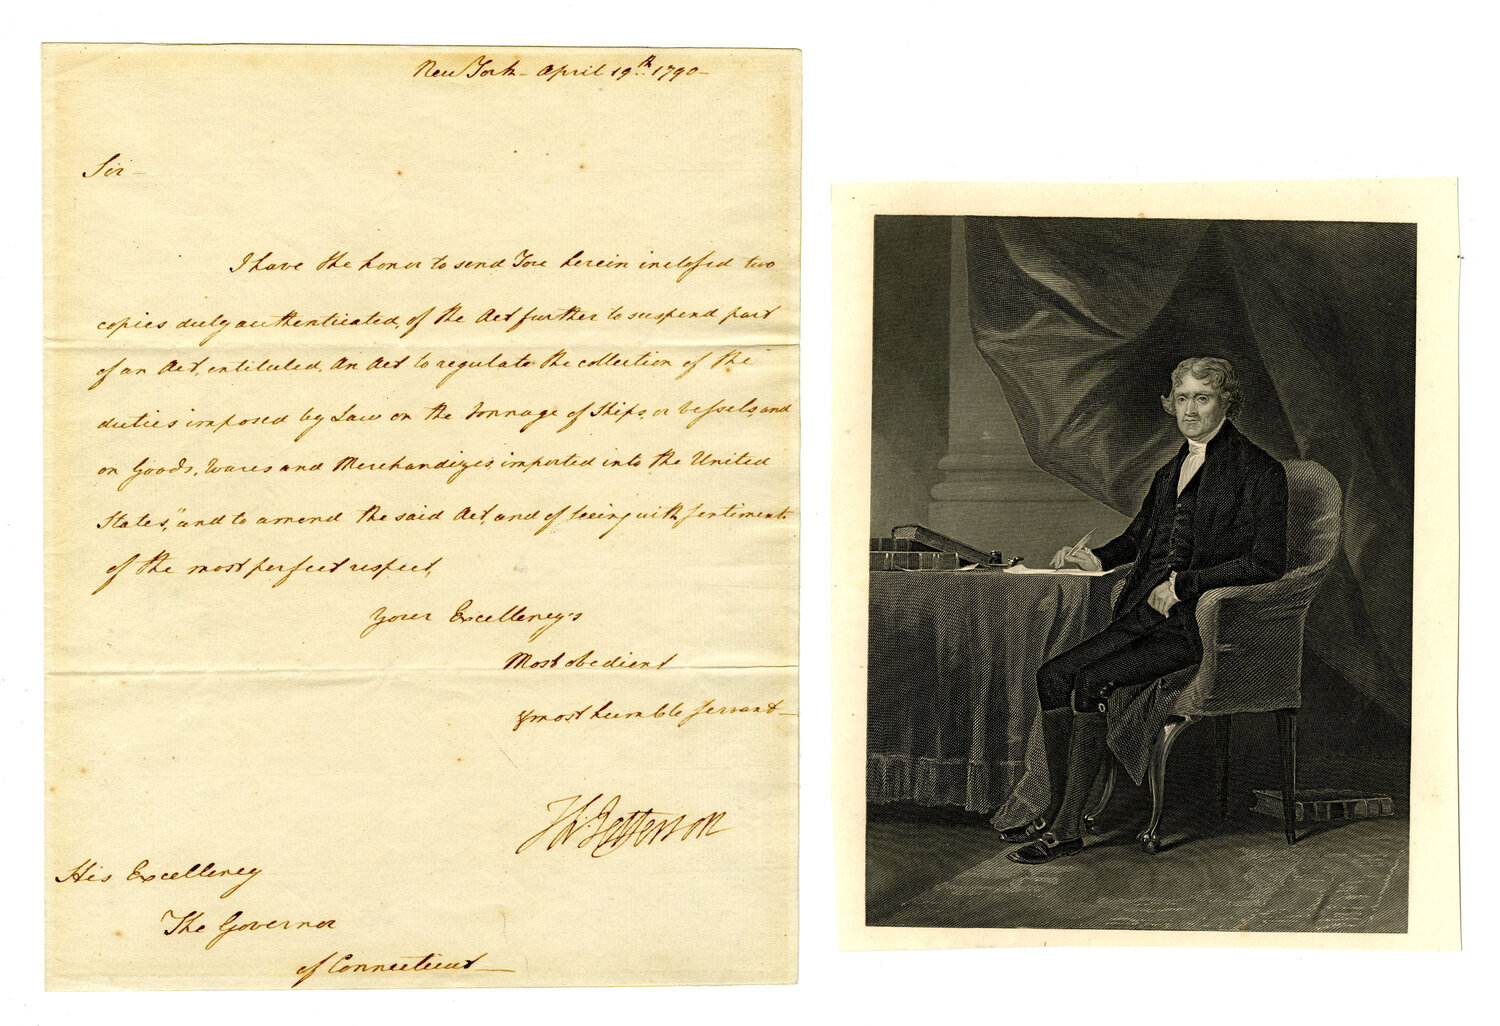 New York - April 19th. 1790 -
Sir -
I have the honor to send You herein inclosed two
copies duly authenticated, of the Act further to suspend part
of an Act, entituled, An Act to regulate the collection of the
duties imposed by Law on the tonnage of Ships, or Vessels, and
on Goods, Wares and Merchandizes, imported into the United
States," and to amend the said Act, and of being with sentiments
of the most perfect respect,
Your Excellency's
Most obedient
& most humble Servant -
Th: Jefferson
His Excellency
The Governor
of Connecticut -